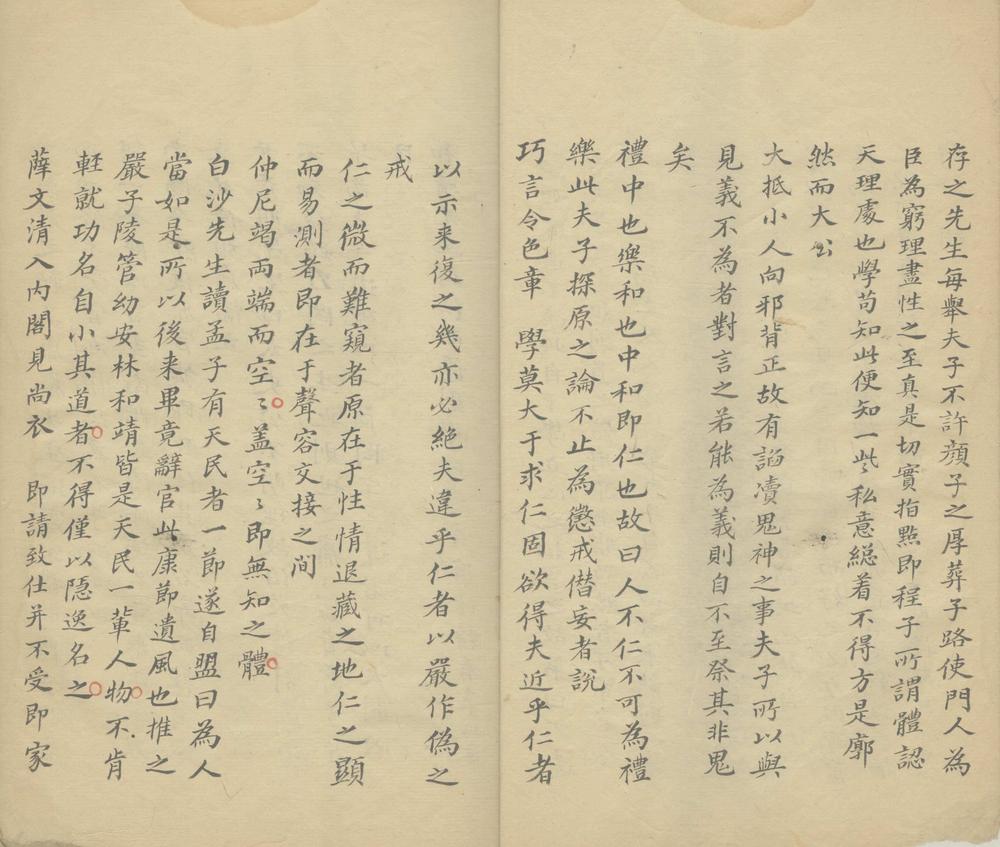 存之先生每舉夫子不許顔子之厚葬子路使門人為
臣為窮理盡性之至真是切實指㸃即程子所謂體認
天理處也學茍知此便知一些私意緫着不得方是廓
然而大公
大抵小人向邪背正故有謟凟鬼神之事夫子所以與
見義不為者對言之若能為義則自不至祭其非鬼
矣
禮中也樂和也中和即仁也故曰人不仁不可為禮
樂此夫子探原之論不止為懲戒僣妄者說
巧言令色章　學莫大于求仁固欲得夫近乎仁者
以示来復之幾亦必絶夫違乎仁者以嚴作偽之
戒
仁之微而難窺者原在于性情退藏之地仁之顯
而易測者即在于聲容交接之間
仲尼竭両端而空〻蓋空〻即無知之體
白沙先生讀孟子有天民者一節遂自盟曰為人
當如是所以後来畢竟辭官此康節遺風也推之
嚴子陵管幼安林和靖皆是天民一軰人物不肯
軽就功名自小其道者不得僅以隠逸名之
薛文清入内閣見尚衣　即請致仕并不受即家